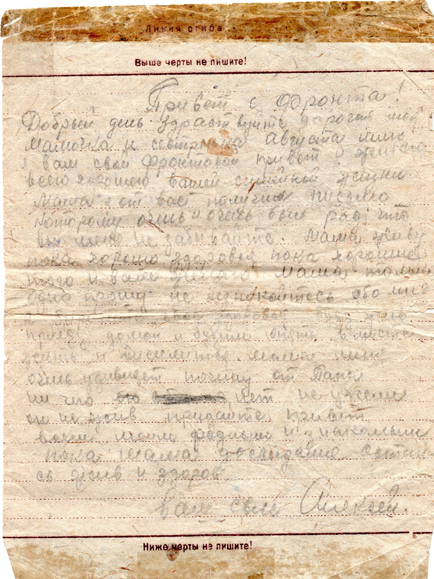 Линия сгиба
Выше черты не пишите!
Привет с Фронта!
Добрый день здраствуйте дорогая моя
мамочка и сестрёнка августа шлю
я вам свой фронтовой привет и желаю
всего хорошего вашей семейной жизни
Мама я от вас получил письмо
которому очень и очень был рад что
вы меня не забываете. Мама живу
пока хорошо здоровья пока хорошее
того и вам желаю Мама только
одно прошу не обо мне
буду жив
домой и будем опять вместе
жить и мама меня
очень почему от Папы
ни что нет неужели
он не жив придайте привет
всем моим родным и знакомым
пока мама досвидание остаюсь
жив и здоров
ваш сын Алексей.
Ниже черты не пишите!